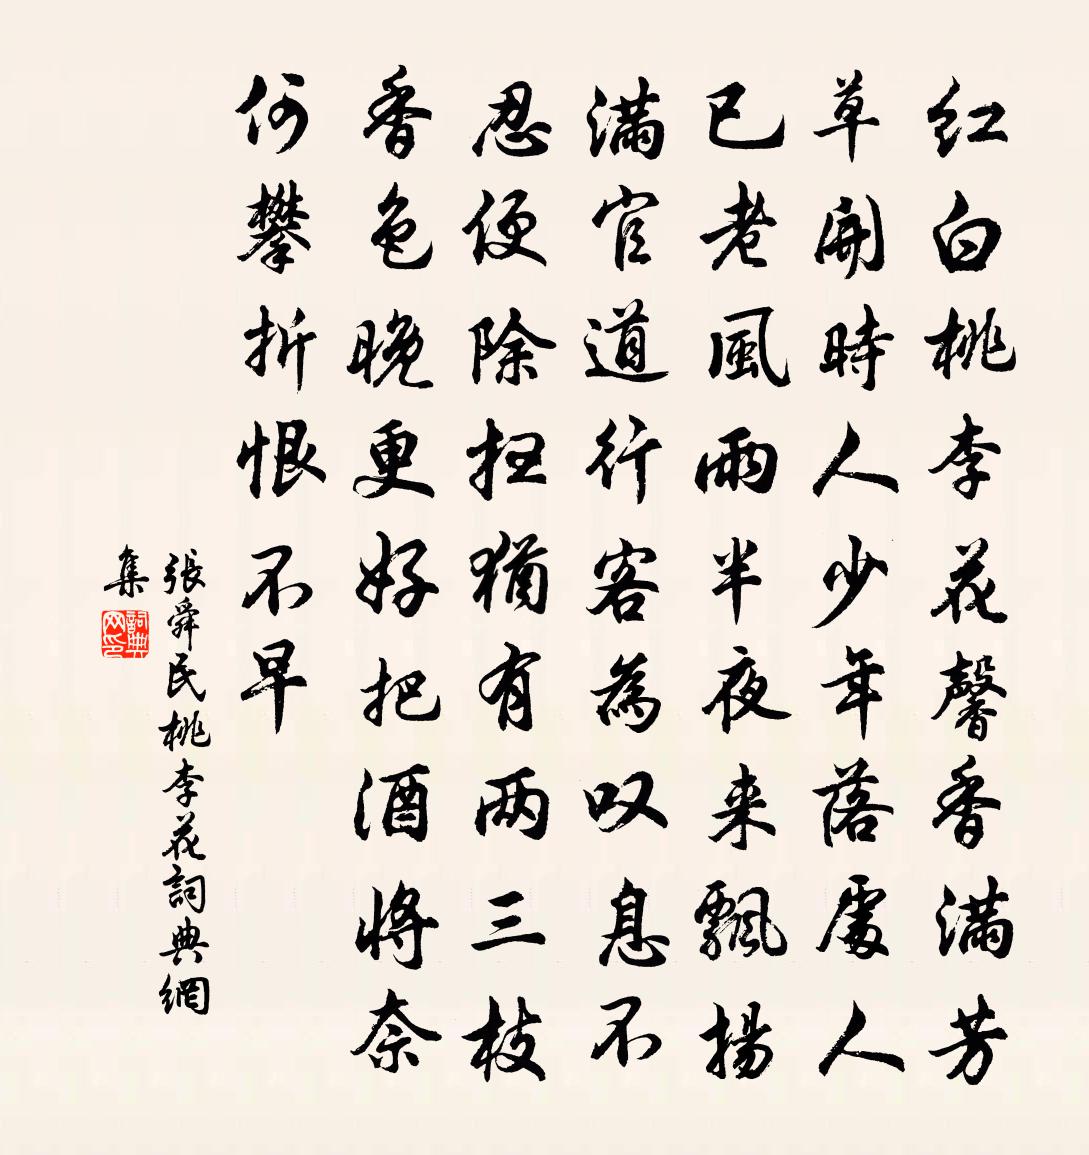 红白桃李花馨香滿芳
草開時人少年落處人
已老風雨半夜来飄揚
滿官道行客為叹息不
忍便除扫猶有两三枝
香色晚更好把酒將奈
何攀折恨不早
張舜民桃李花詞典網
集
詞典网印